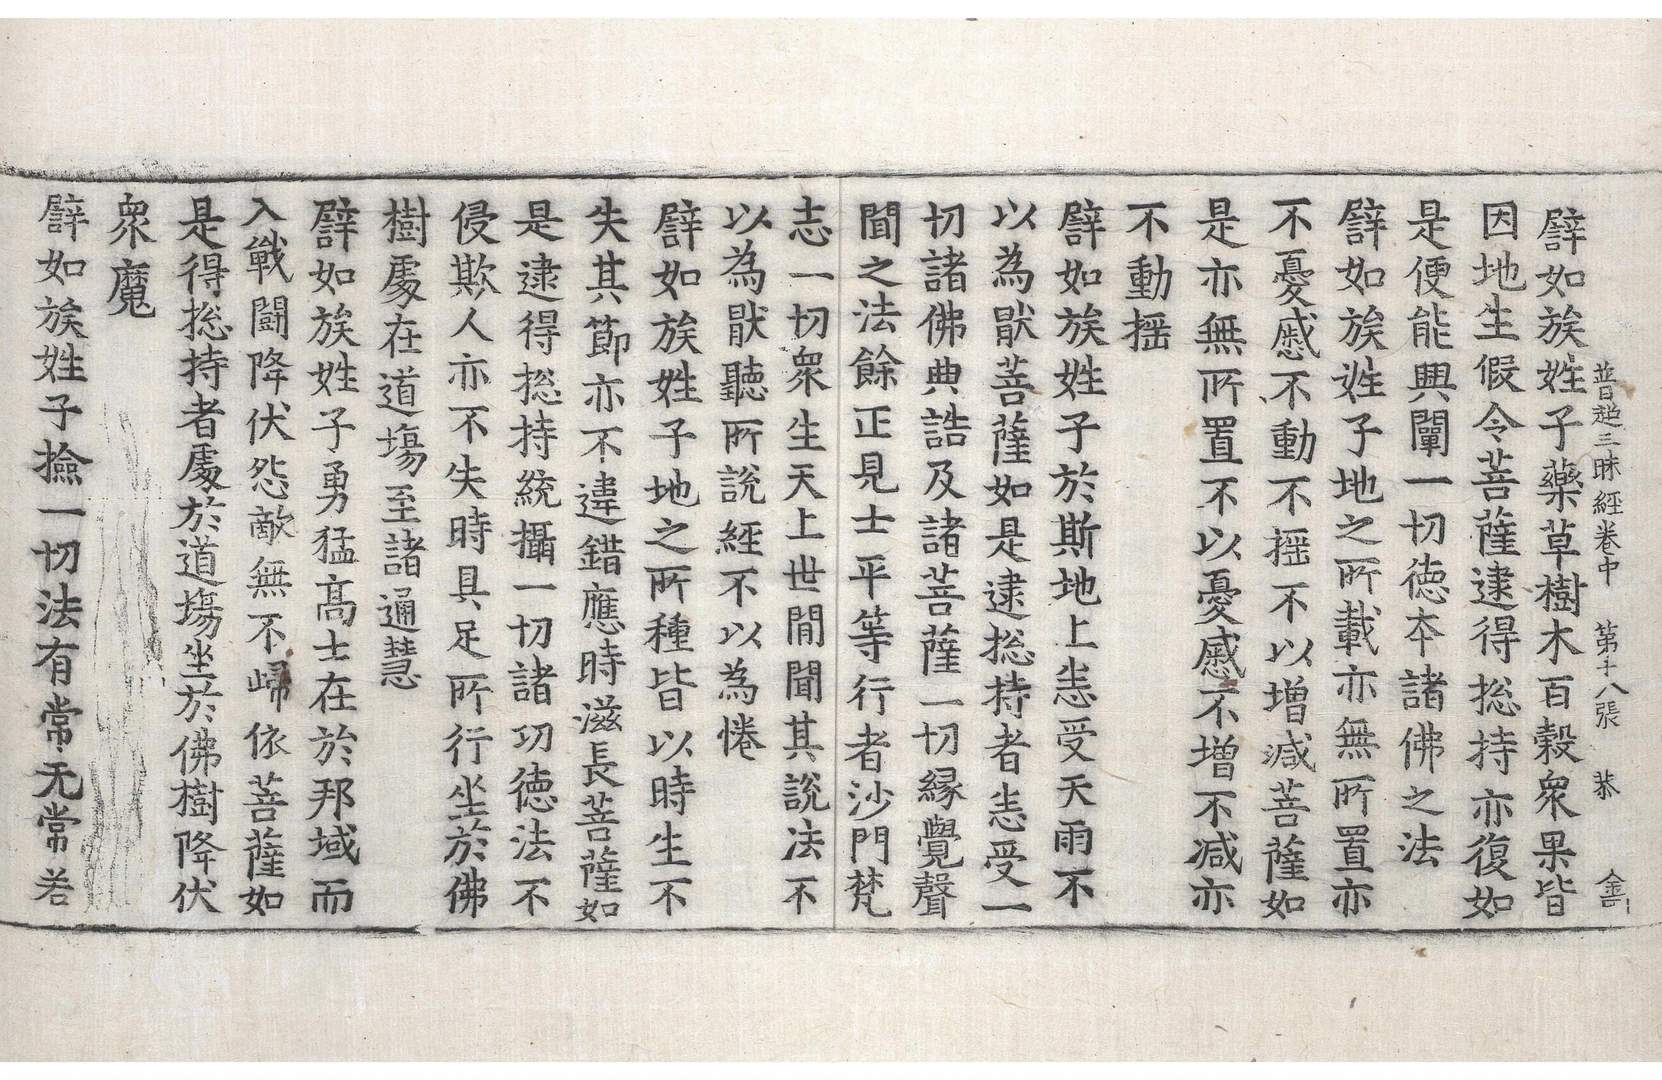 普超三昧經卷中 第十八張 恭
譬如族姓子藥草樹木百穀衆果皆
因地生假令菩薩逮得捴持亦復如
是便能興闡一切徳本諸佛之法
譬如族姓子地之所載亦無所置亦
不憂慼不動不揺不以增減菩薩如
是亦無所置不以憂慼不增不减亦
不動揺
譬如族姓子於斯地上恚受天雨不
以為猒菩薩如是逮捴持者恚受一
切諸佛典誥及諸菩薩一切縁覺聲
聞之法餘正見士平等行者沙門梵
志一切衆生天上世間聞其說法不
以為猒聽所說經不以為惓
譬如族姓子地之所種皆以時生不
失其節亦不違錯應時滋長菩薩如
是逮得捴持統攝一切諸功徳法不
侵欺人亦不失時具足所行坐於佛
樹處在道場至諸通慧
譬如族姓子勇猛高士在於邦域而
入戰鬪降伏怨敵無不歸依菩薩如
是得捴持者處於道場坐於佛樹降伏
衆魔
譬如族姓子撿一切法有常无常若